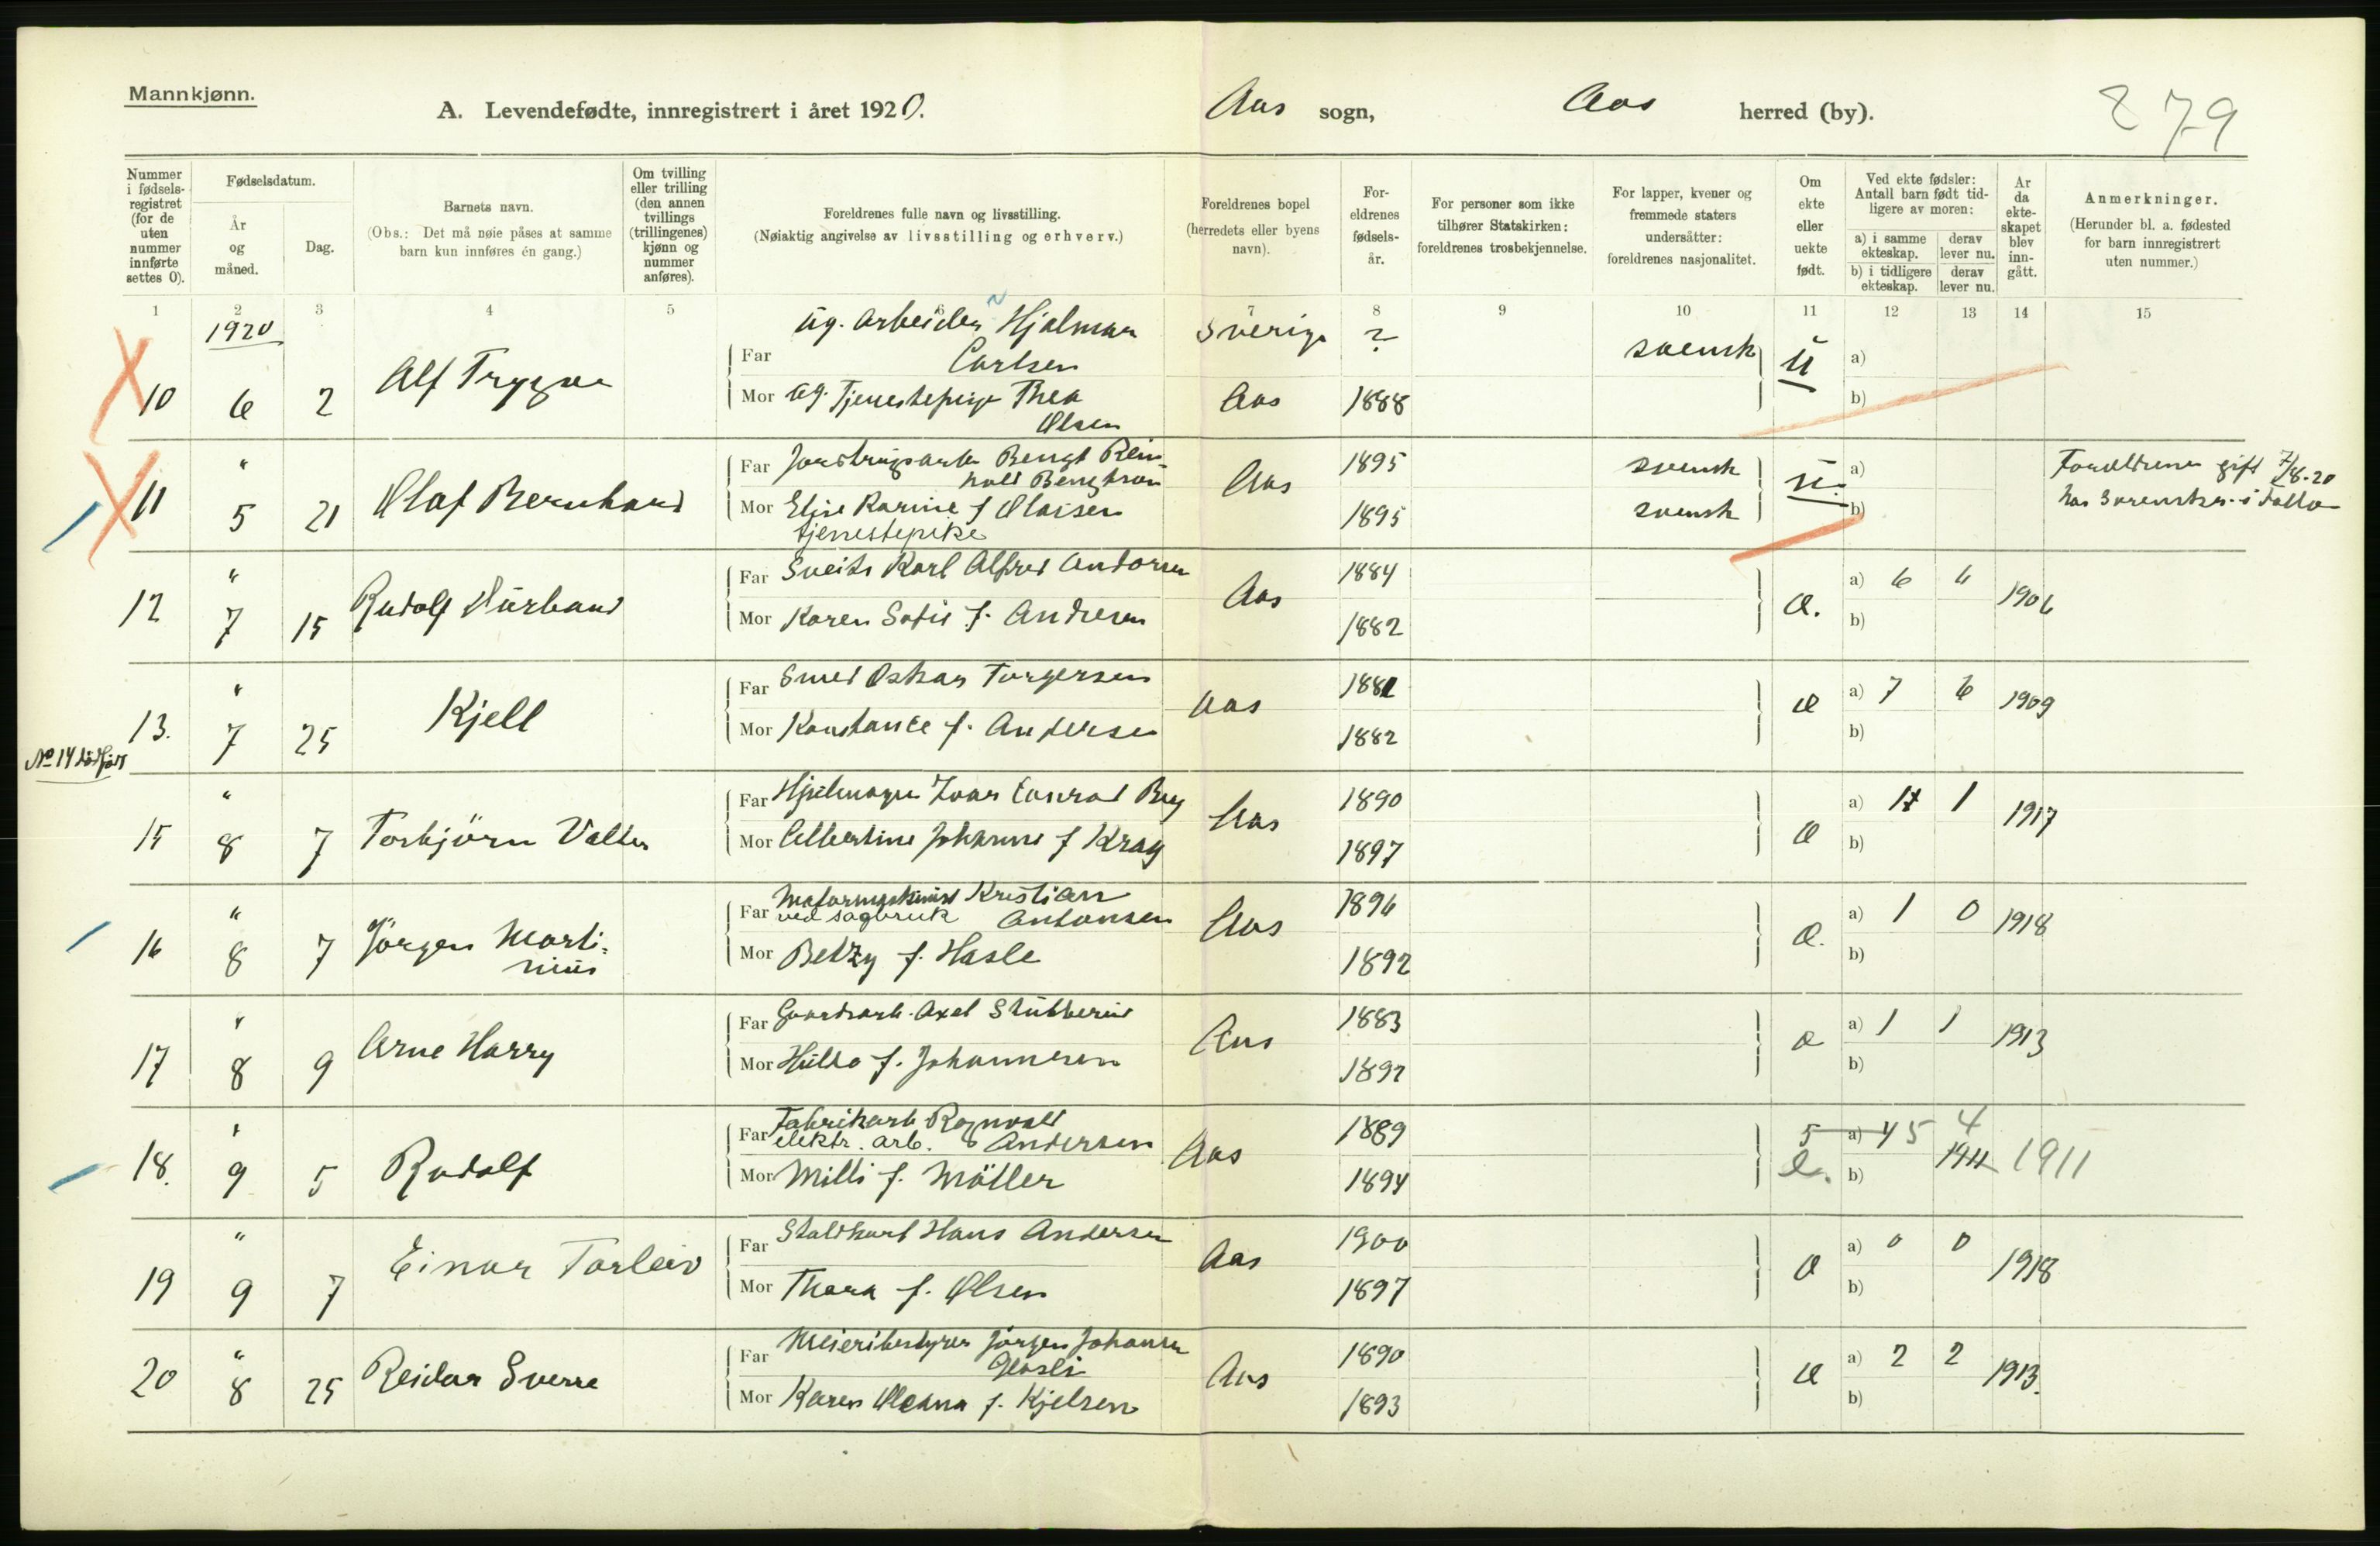 Mannkjønn.
A. Levendefødte, innregistrert i året 1920. Aas sogn, Aas herred (by). 279
Nummer i fødsels-registret (for de uten nummer innførte settes 0).
Fødselsdatum.
År og måned.
Dag.
Barnets navn.
(Obs.: Det må nøie påses at samme barn kun innføres én gang.)
Om tvilling eller trilling (den annen tvillings (trillingenes) kjønn og nummer anføres).
Foreldrenes fulle navn og livsstilling.
(Nøiaktig angivelse av livsstilling og erhverv.)
Foreldrenes bopel (herredets eller byens navn).
For-eldrenes fødsels-år.
For personer som ikke tilhører Statskirken: foreldrenes trosbekjennelse.
For lapper, kvener og fremmede staters undersåtter: foreldrenes nasjonalitet.
Om ekte eller uekte født.
Ved ekte fødsler: Antall barn født tid-ligere av moren:
a) i samme ekteskap. derav lever nu.
b) i tidligere ekteskap. derav lever nu.
År da ekte-skapet blev inn-gått.
Anmerkninger.
(Herunder bl. a. fødested for barn innregistrert uten nummer.)
1 2 3 4 5 6 7 8 9 10 11 12 13 14 15
1920
Far ug. Arbeider Hjalmar Sverige ? svensk ü a)
Carlsen
10 6 2 Alf Trygve Mor ug. Tjenestepige Thea Aas 1888 b)
Olsen
" Far Jordbrugsarb. Bengt Rein- 1895 svensk a) Foreldrene gift 7/8-20
hold Bengtson Aas ü.
11 5 21 Olaf Bernhard Mor Elise Karine f Olaisen 1895 svensk b)
tjenestepike
" Far Sveits Karl Alfred Andersen 1884 a) 6 6 1906
12 7 15 Rudolf Mor Karen Sofie f. Andresen Aas 1882 Æ. b)
" Far Smed Oskar Torgersen 1881 a) 7 6 1909
13. 7 25 Kjell Mor Konstance f. Andersen Aas 1882 Æ b)
No 14 dødfødt
" Far Hjulmager Ivar Conrad Berg 1890 a) 1 1 1917
15 8 7 Torbjörn Valter Mor Albertine Johanne f Krag Aas 1897 Æ b)
" Far Motormaskinist Kristian 1896 a) 1 0 1918
ved sagbruk Antonsen Aas
16 8 7 Jörgen Marti- Mor Betzy f. Hasle 1892 Æ. b)
nius
" Far Gaardsarb. Axel Stubberud 1883 a) 1 1 1913
17 8 9 Arne Harry Mor Hulda f. Johannesen Aas 1892 Æ b)
" Far Fabrikarb Ragnvald 1889 5 a) 4 5 4
elektr. arb. Andersen Aas 1911 1911
18. 9 5 Rudolf Mor Milli f. Möller 1894 e. b)
" Far Staldkarl Hans Andersen 1900 a) 0 0 1918
19 9 7 Einar Torleiv Mor Thora f. Olsen Aas 1897 Æ b)
" Far Meieribestyrer Jörgen Johansen 1890 a) 2 2 1913.
Glosli Aas
20 8 25 Reidar Sverre Mor Karen Oleana f. Kjelsen 1893 Æ b)